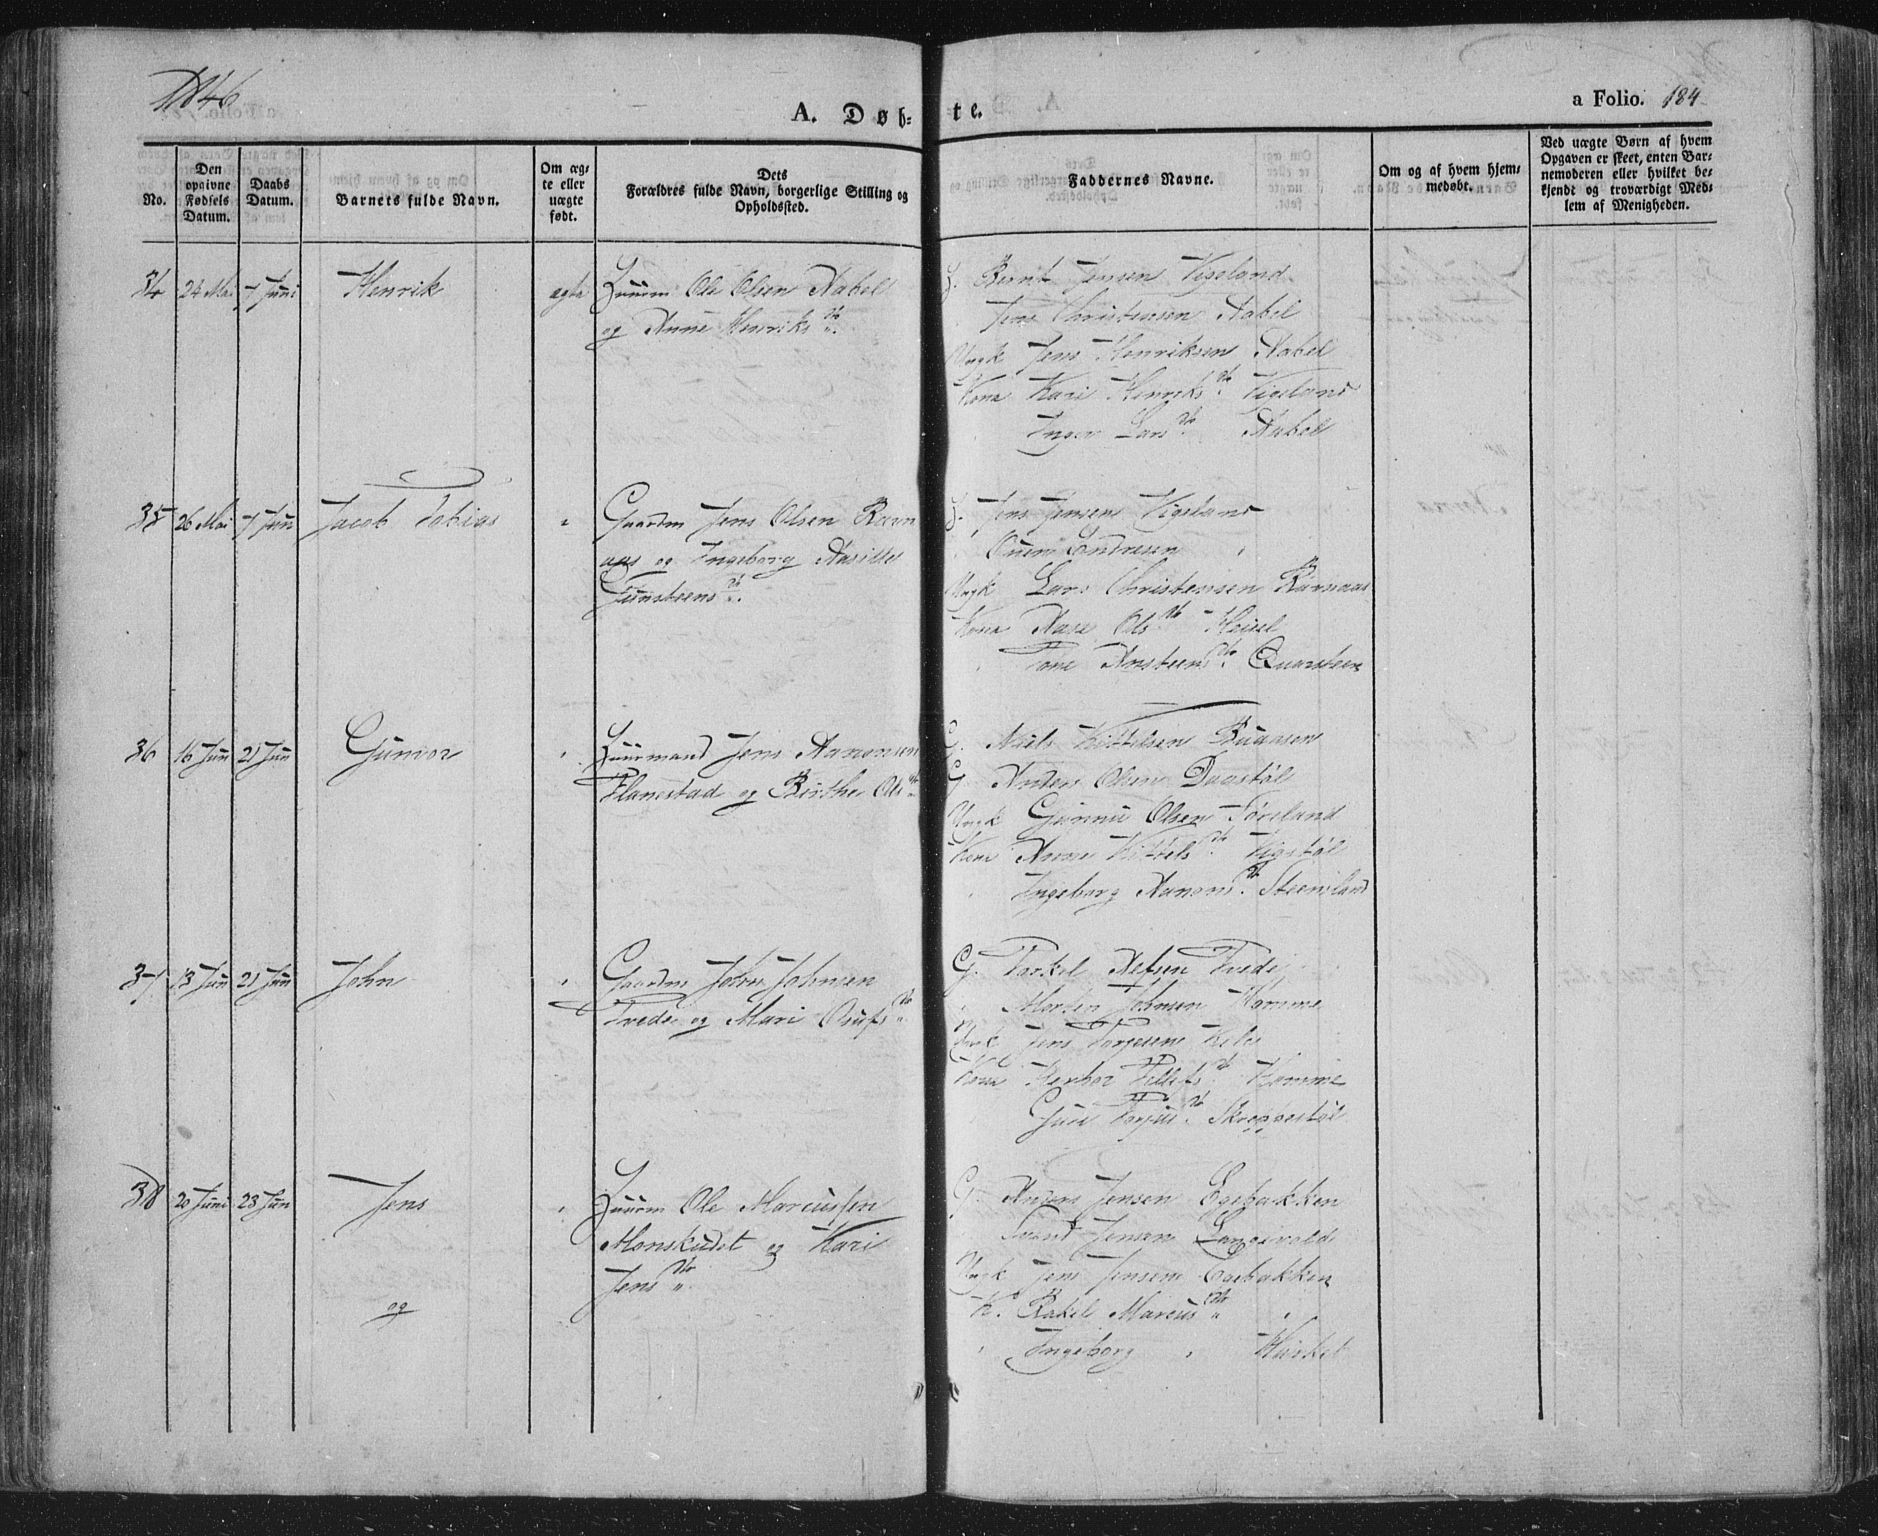 1846
A. Døb-
te.
a Folio. 184
No.
Den opgivne Fødsels Datum.
Daabs Datum.
Barnets fulde Navn.
Om ægte eller uægte født.
Dets
Forældres fulde Navn, borgerlige Stilling og
Opholdssted.
Faddernes Navne.
Om og af hvem hjemmedøbt.
Ved uægte Børn af hvem
Opgaven er skeet, enten Bar-
nemoderen eller hvilket be-
kjendt og troværdigt Med-
lem af Menigheden.
34 24 Mai 7 Juni Henrik ægte Huusm Ole Olsen Aabel
og Anne Henriksdtr.
Bernt Jensen Vigeland
Jens Christensen Aabel
Ungk Jens Henriksen Aabel
Kona Kari Henriksdtr. Vigeland
Inger Larsdtr. Aabel
35 26 Mai 7 Jun Jacob Tobias " Gaardm Jens Olsen Ravn
aas og Ingeborg Aasille
Gunsteensdtr.
Jens Jensen Vigeland
Ouen Endresen "
Ungk Lars Christensen Ravnaas
Kona Aase Olsdtr
Tone Ansteensdtr. Quarsteen
36 16 Jun 21 Jun Gunvor " Huusmand Jens Aanonsen
Flanestad og Birthe Olsdtr
G. Niels Kittelsen Buaasen
G. Anders Olsen Daastøl
Ungk Gunnu Olsen Føreland
Kone Anne Kittelsdtr. Vigstøl
" Ingeborg Aanonsdtr. Steensland
37 13 Jun 21 Jun John " Gaardm John Johnsen
Tvede og Mari Osufsdtr.
G. Torkel Alfsen Tvede
" Morten Johnsen Homme
Ungk Jens Torjesen
Kona Herbor Tellefsdtr. Homme
Guri Torjusdtr. Skreppestøl
38 20 Juni 23 Jun Jens " Huusm Ole Marcussen
Monskudet og Kari
Jensdtr.
og
G. Anders Jensen Egebakken
Svend Jensen Langevold
Ungk Jens Jensen Egebakken
K. Rakel Marcusdtr "
" Ingeborg "